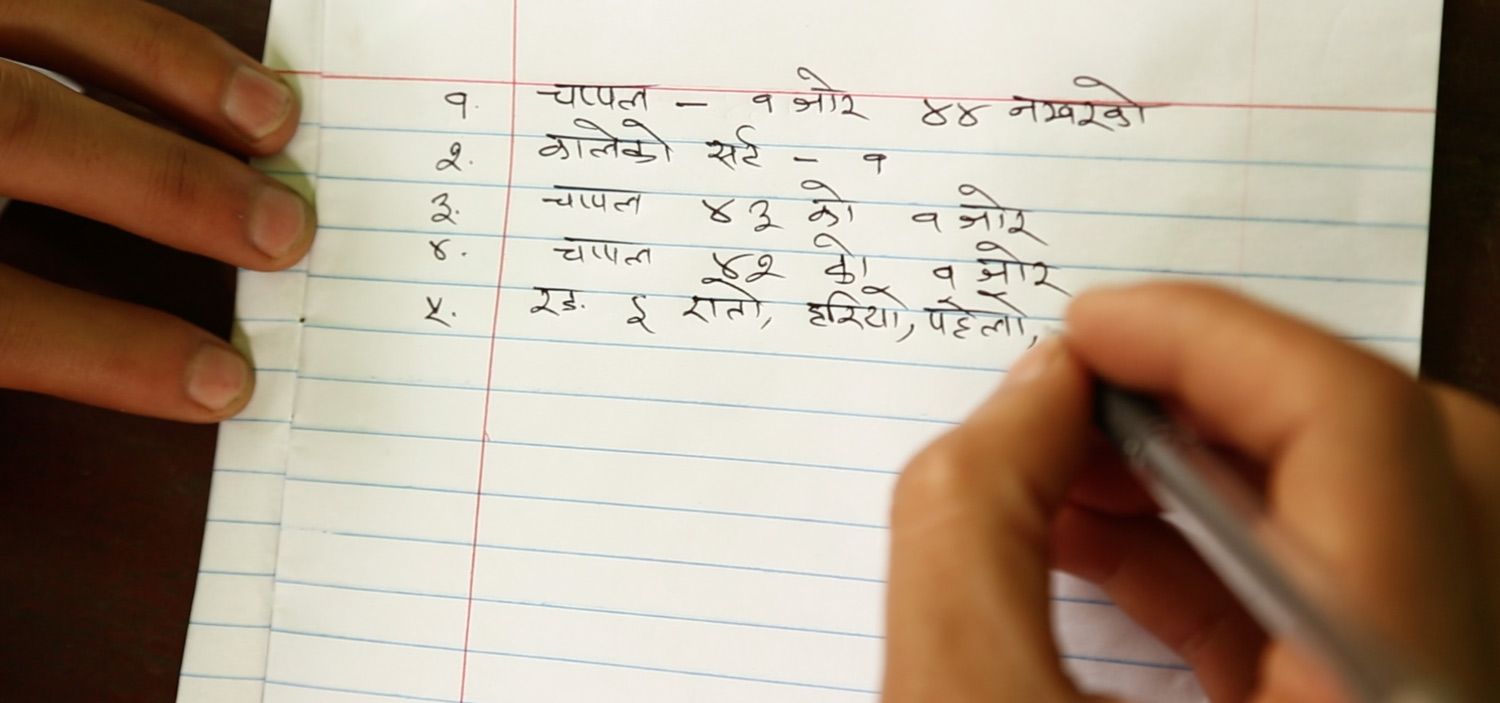 १. चप्पल – १ जोर ४४ नम्बरको
२. कालेको सर्ट – १
३. चप्पल ४३ को १ जोर
४. चप्पल ४२ को १ जोर
५. रङ. इ रातो, हरियो, पहेलो,